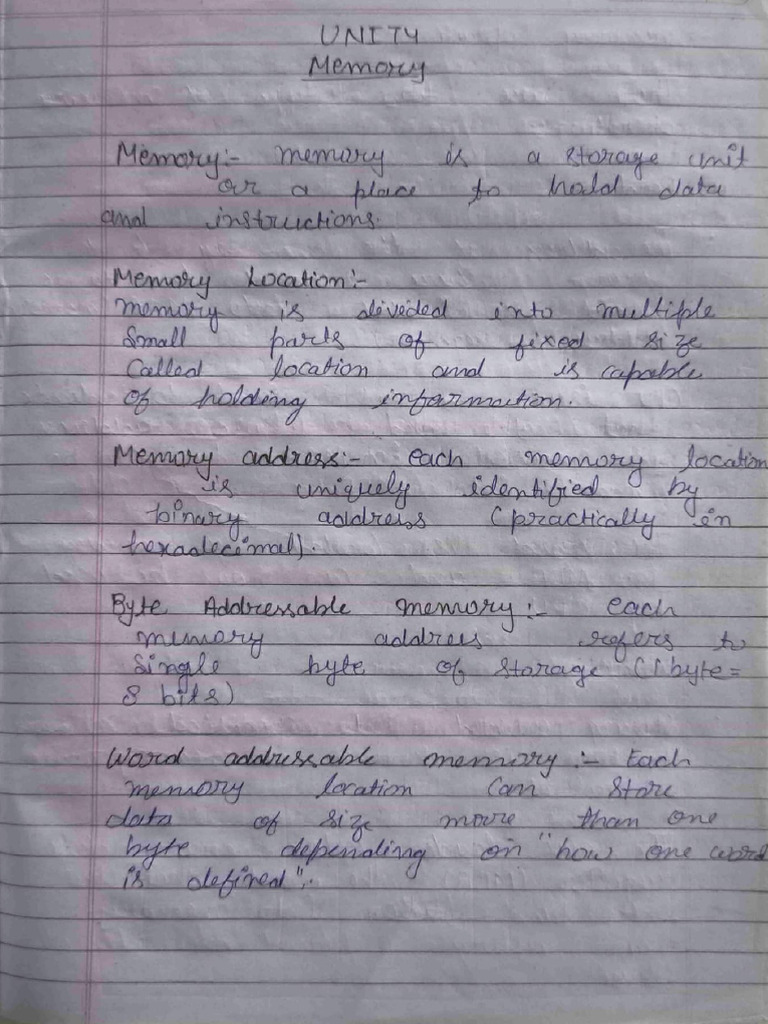 UNIT4
Memory
Memory:- memory is a storage unit
or a place to hold data
and instructions.
Memory Location:-
memory is devided into multiple
Small parts of fixed size
Called location and is capable
of holding information.
Memory address:- each memory location
is uniquely identified by
binary address (practically in
hexadecimal).
Byte Addressable memory:- each
memory address refers to
single byte of storage (1 byte=
8 bits)
Word addressable memory:- Each
memory location can store
data of size more than one
byte depending on "how one word
is defined".